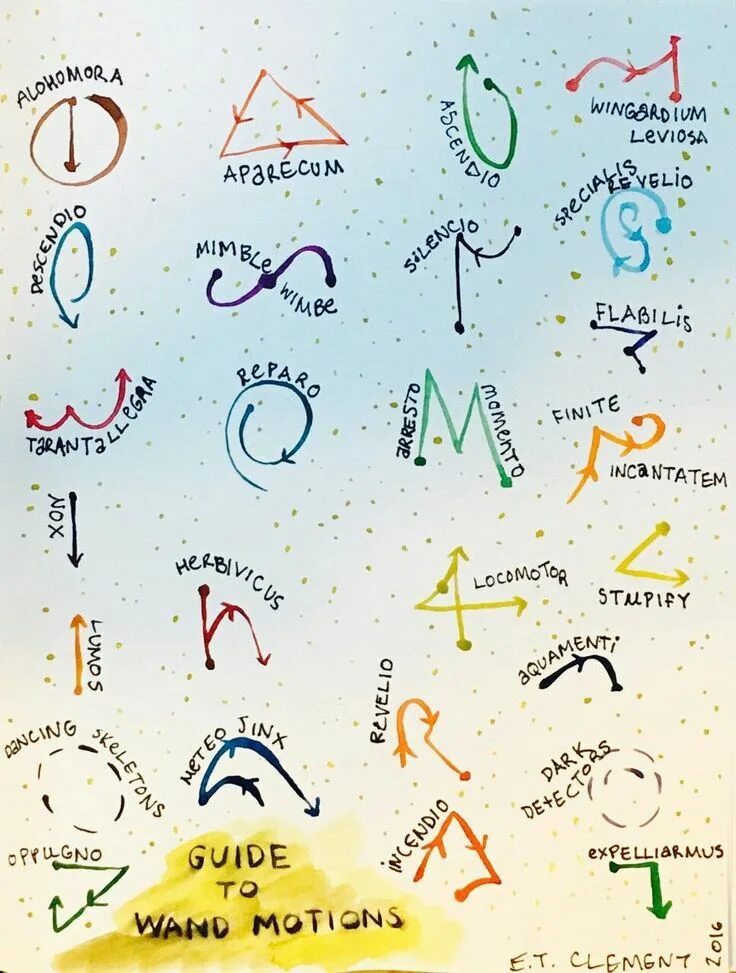 ALOHOMORA
APARECUM
ASCENDIO
WINGARDIUM
LEVIOSA
DESCENDIO
MIMBLE
WIMBE
SILENCIO
SPECIALIS
REVELIO
FLABILIS
TARANTALLEGRA
REPARO
ARRESTO
MOMENTO
FINITE
INCANTATEM
NOX
HERBIVICUS
LOCOMOTOR
STUPIFY
LUMOS
AQUAMENTI
REVELIO
DANCING SKELETONS
METEO JINX
DARK
DETECTORS
OPPUGNO
INCENDIO
EXPELLIARMUS
GUIDE
TO
WAND MOTIONS
E.T. CLEMENT 2016